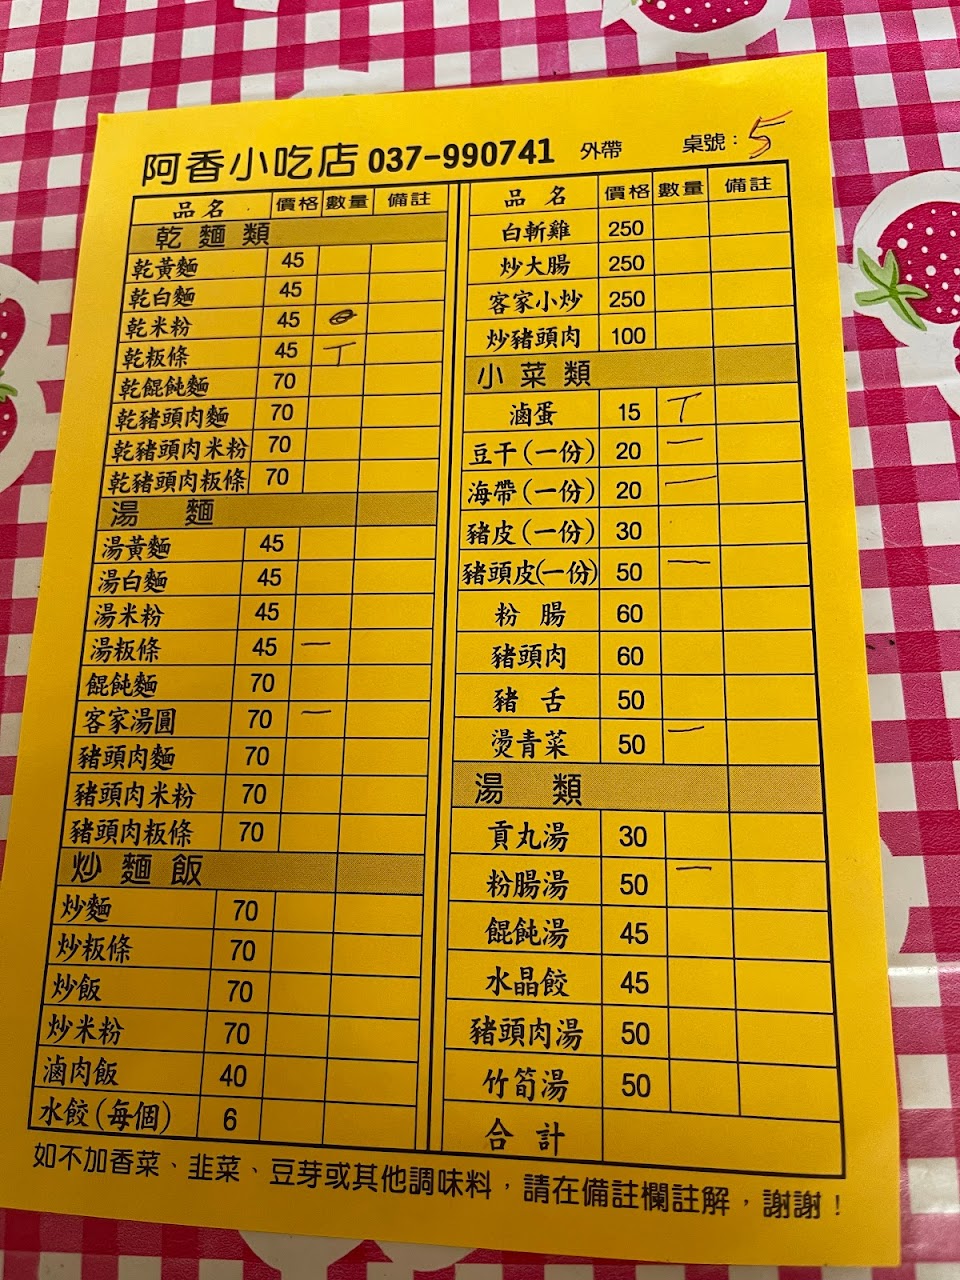 阿香小吃店 037-990741 外帶 桌號：5
品名 價格 數量 備註
乾麵類
乾黃麵 45
乾白麵 45
乾米粉 45
乾粄條 45 丅
乾餛飩麵 70
乾豬頭肉麵 70
乾豬頭肉米粉 70
乾豬頭肉粄條 70
湯麵
湯黃麵 45
湯白麵 45
湯米粉 45
湯粄條 45 一
餛飩麵 70
客家湯圓 70 一
豬頭肉麵 70
豬頭肉米粉 70
豬頭肉粄條 70
炒麵飯
炒麵 70
炒粄條 70
炒飯 70
炒米粉 70
滷肉飯 40
水餃(每個) 6
品名 價格 數量 備註
白斬雞 250
炒大腸 250
客家小炒 250
炒豬頭肉 100
小菜類
滷蛋 15 丅
豆干(一份) 20 一
海帶(一份) 20 一
豬皮(一份) 30
豬頭皮(一份) 50 一
粉腸 60
豬頭肉 60
豬舌 50
燙青菜 50 一
湯類
貢丸湯 30
粉腸湯 50 一
餛飩湯 45
水晶餃 45
豬頭肉湯 50
竹筍湯 50
合計
如不加香菜、韭菜、豆芽或其他調味料，請在備註欄註解，謝謝！